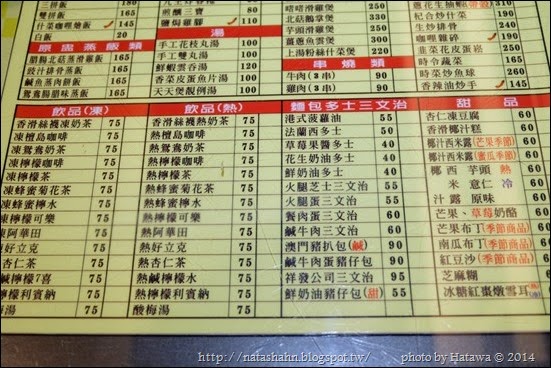 三拼飯 180
雙拼飯 165
什菜咖喱燴飯 145
白飯 20
煎釀三寶 180
鹽焗雞腳
嗜嗜滑雞煲
北菇鵝掌煲
芋頭滑雞煲
薑蔥魚雲煲
上湯粉絲什菜煲
杞合炒什菜
生炒排骨
咖喱雜碎
韭菜花皮蛋崧 250
時令蔬菜 165
時菜炒魷球 260
香辣油炒手 145
原盅蒸飯類
臘腸北菇滑雞飯 165
豉汁排骨蒸飯 165
鹹魚蒸肉餅飯 165
鴛鴦腸臘味蒸飯 165
湯
手工花枝丸湯 100
手工雙丸湯 100
鮮蝦雲吞湯 100
香菜皮蛋魚片湯 100
天天煲靚例湯 100
串燒類
牛肉(3串) 90
雞肉(3串) 90
飲品(凍)
香滑絲襪凍奶茶 75
凍檀島咖啡 75
凍鴛鴦奶茶 75
凍檸檬咖啡 75
凍檸檬茶 75
凍蜂蜜菊花茶 75
凍蜂蜜檸水 75
凍檸檬可樂 75
凍阿華田 75
凍好立克 75
凍杏仁茶 75
凍鹹檸檬7喜 75
凍檸檬利賓納 75
酸梅湯 75
飲品(熱)
香滑絲襪熱奶茶 75
熱檀島咖啡 75
熱鴛鴦奶茶 75
熱檸檬咖啡 75
熱檸檬茶 75
熱蜂蜜菊花茶 75
熱蜂蜜檸水 75
熱檸檬可樂 75
熱阿華田 75
熱好立克 75
熱杏仁茶 75
熱鹹檸檬水 75
熱檸檬利賓納 75
酸梅湯 75
麵包多士三文治
港式菠蘿油 55
法蘭西多士 50
草莓果醬多士 40
花生奶油多士 40
鮮奶油多士 40
火腿芝士三文治 60
火腿蛋三文治 60
餐肉蛋三文治 60
鹹牛肉蛋三文治 60
澳門豬扒包(鹹) 90
鹹牛肉蛋豬仔包 90
祥發公司三文治 95
鮮奶油豬仔包(甜) 55
甜品
杏仁凍豆腐 60
香滑椰汁糕 60
椰汁西米露(芒果季節)
椰汁西米露(蜜瓜季節)
椰西芋頭 熱 60
米意仁 冷
汁露原味
芒果、草莓奶酪 60
芒果布丁(季節商品) 60
南瓜布丁(季節商品) 60
紅豆沙(季節商品) 60
芝麻糊
冰糖紅棗燉雪耳
http://natashahn.blogspot.tw/ photo by Hatawa © 2014